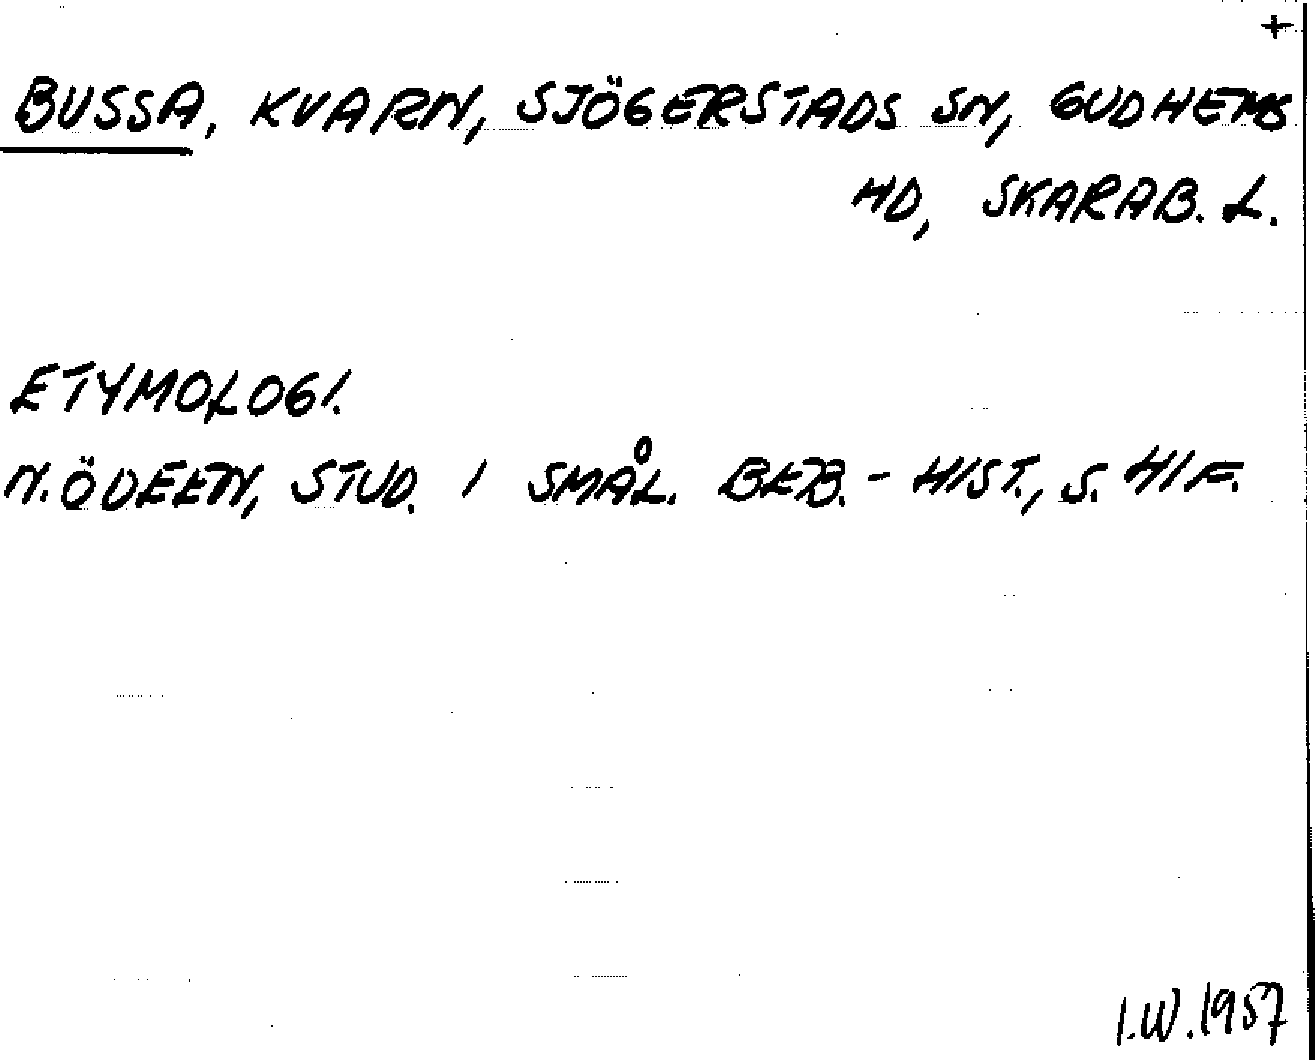 +
BUSSA, KVARN, SJÖGERSTADS SN, GUDHEMS
HD, SKARAB. L.
ETYMOLOGI.
N. ÖDEEN, STUD. I SMÅL. BEB.-HIST., S. 41 F.
I.W. 1957